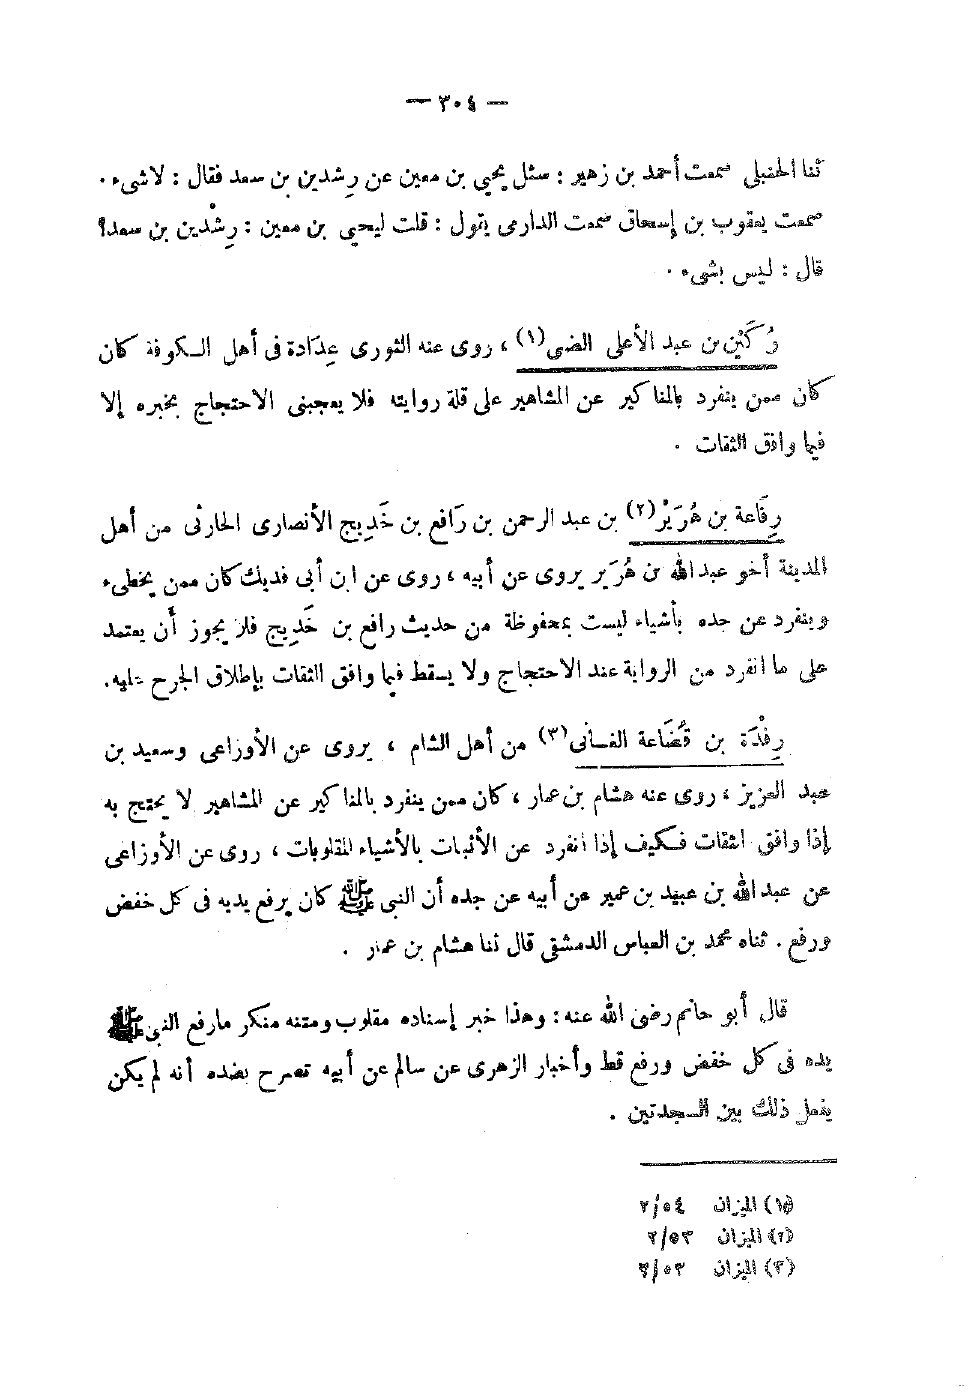 — ٣٠٤ —
ثنا الحنبلى سمعت أحمد بن زهير : سئل يحيى بن معين عن رِشدين بن سعد فقال : لاشىء .
سمعت يعقوب بن إسحاق سمعت الدارمى يقول : قلت ليحيى بن معين : رِشْدين بن سعد؟
قال : ليس بشىء .
رُكَيْن بن عبد الأعلى الضبى(١) ، روى عنه الثورى عِدَادة فى أهل الكوفة كان
كان ممن ينفرد بالمناكير عن المشاهير على قلة روايته فلا يعجبنى الاحتجاج بخبره إلا
فيما وافق الثقات .
رِفَاعة بن هُرَيْر(٢) بن عبد الرحمن بن رَافع بن خَدِيج الأنصارى الحارثى من أهل
المدينة أخو عبد الله بن هُرَير يروى عن أبيه ، روى عن ابن أبى فديك كان ممن يخطىء
وينفرد عن جده بأشياء ليست بمحفوظة من حديث رافع بن خَدِيج فلا يجوز أن يعتمد
على ما انفرد من الرواية عند الاحتجاج ولا يسقط فيما وافق الثقات بإطلاق الجرح عليه .
رِفْدَة بن قُضَاعة الغسانى(٣) من أهل الشام ، يروى عن الأوزاعى وسعيد بن
عبد العزيز ، روى عنه هشام بن عمار ، كان ممن ينفرد بالمناكير عن المشاهير لا يحتج به
إذا وافق الثقات فكيف إذا انفرد عن الأثبات بالأشياء المقلوبات ، روى عن الأوزاعى
عن عبد الله بن عبيد بن عمير عن أبيه عن جده أن النبى ﷺ كان يرفع يديه فى كل خفض
ورفع . ثناه محمد بن العباس الدمشقى قال ثنا هشام بن عمار .
قال أبو حاتم رضى الله عنه : وهذا خبر إسناده مقلوب ومتنه منكر مارفع النبى ﷺ
يده فى كل خفض ورفع قط وأخبار الزهرى عن سالم عن أبيه تصرح بضده أنه لم يكن
يفعل ذلك بين السجدتين .
(١) الميزان ٢/٥٤
(٢) الميزان ٢/٥٣
(٣) الميزان ٢/٥٣